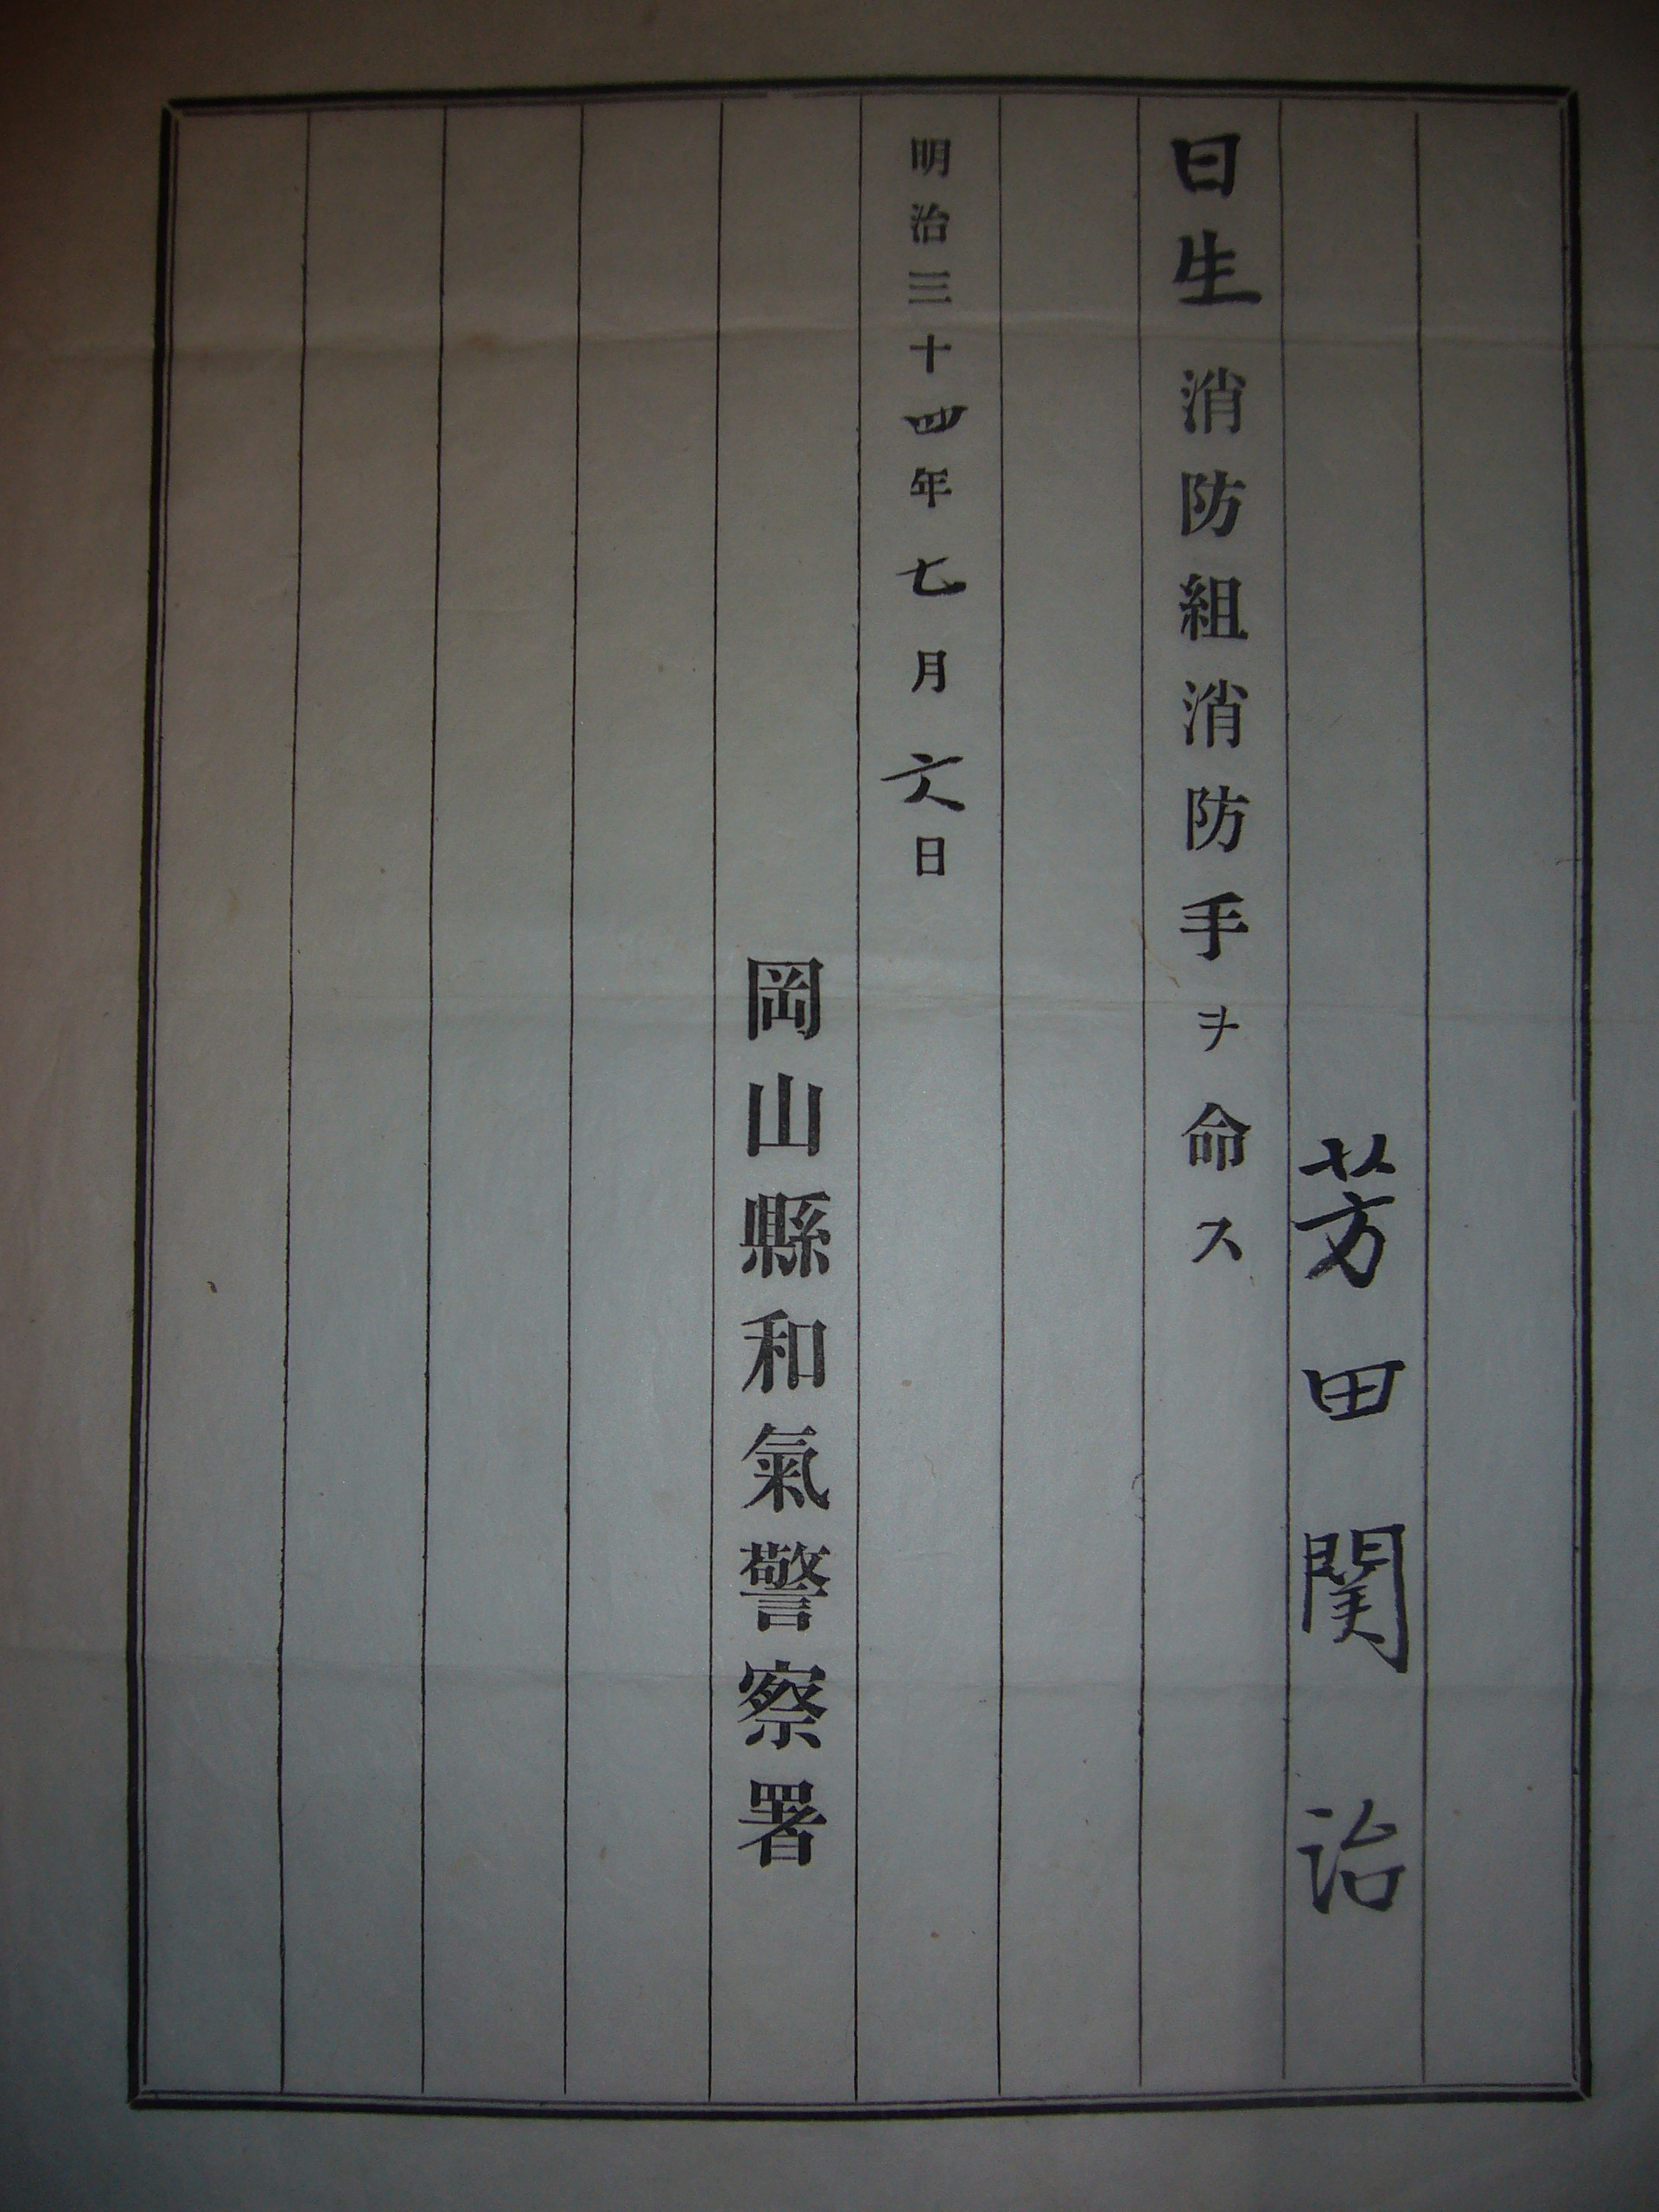 芳田関治
日生消防組消防手ヲ命ス
明治三十四年七月六日
岡山縣和氣警察署